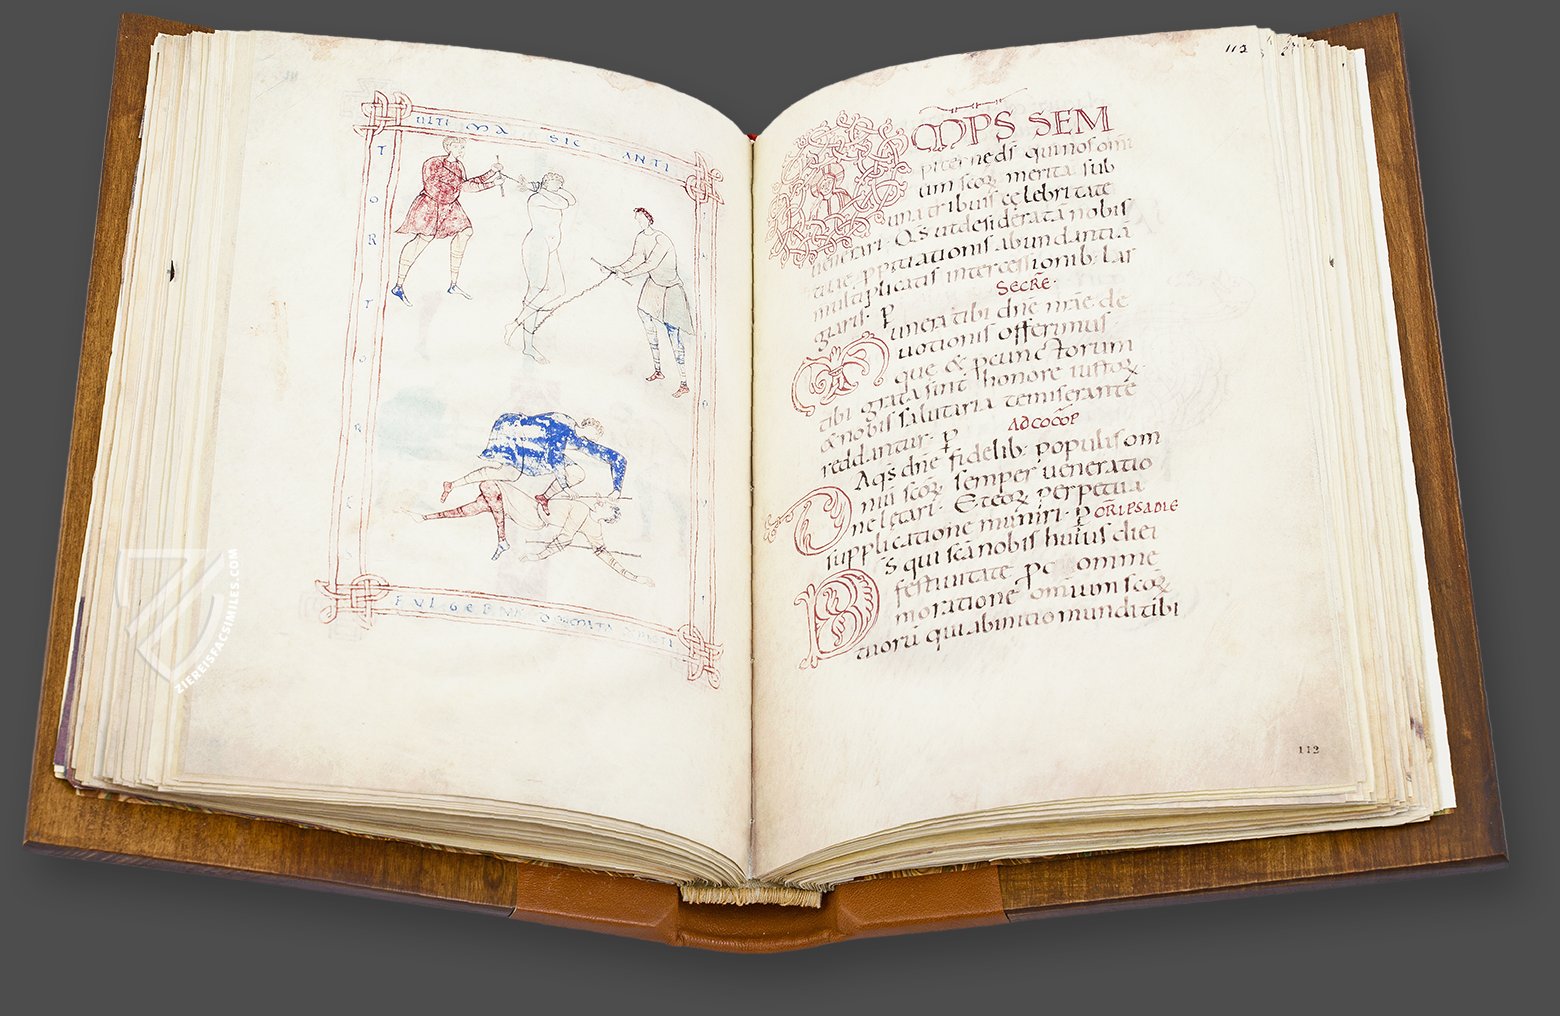 ULTIMA SIC ANTI
TORTOR
112
OMPS SEM
piterne dſ qui nos omi
um scoꝝ merita sub
una tribuisti celebritate
uenerari · Qs ut desideratā nobis
tuae ppitiationis abundantia
multiplicatis intercessionib· lar
giaris· P
SECRE·
unera tibi dne nrae de
uotionis offerimus
que & p cunctorum
tibi grata sint honore iustoꝝ
& nobis salutaria te miserante
reddantur· P
AD COOP
A qs dne fidelib· populis om
niu scoꝝ semper ueneratio
ne letari· Et eoꝝ perpetua
supplicatione muniri· P OR IPSA DIE
S qui scā nobis huius diei
festiuitate pc omme
moratione omium scoꝝ
tuorū qui ab initio mundi tibi
112
ZIEREISFACSIMILES.COM